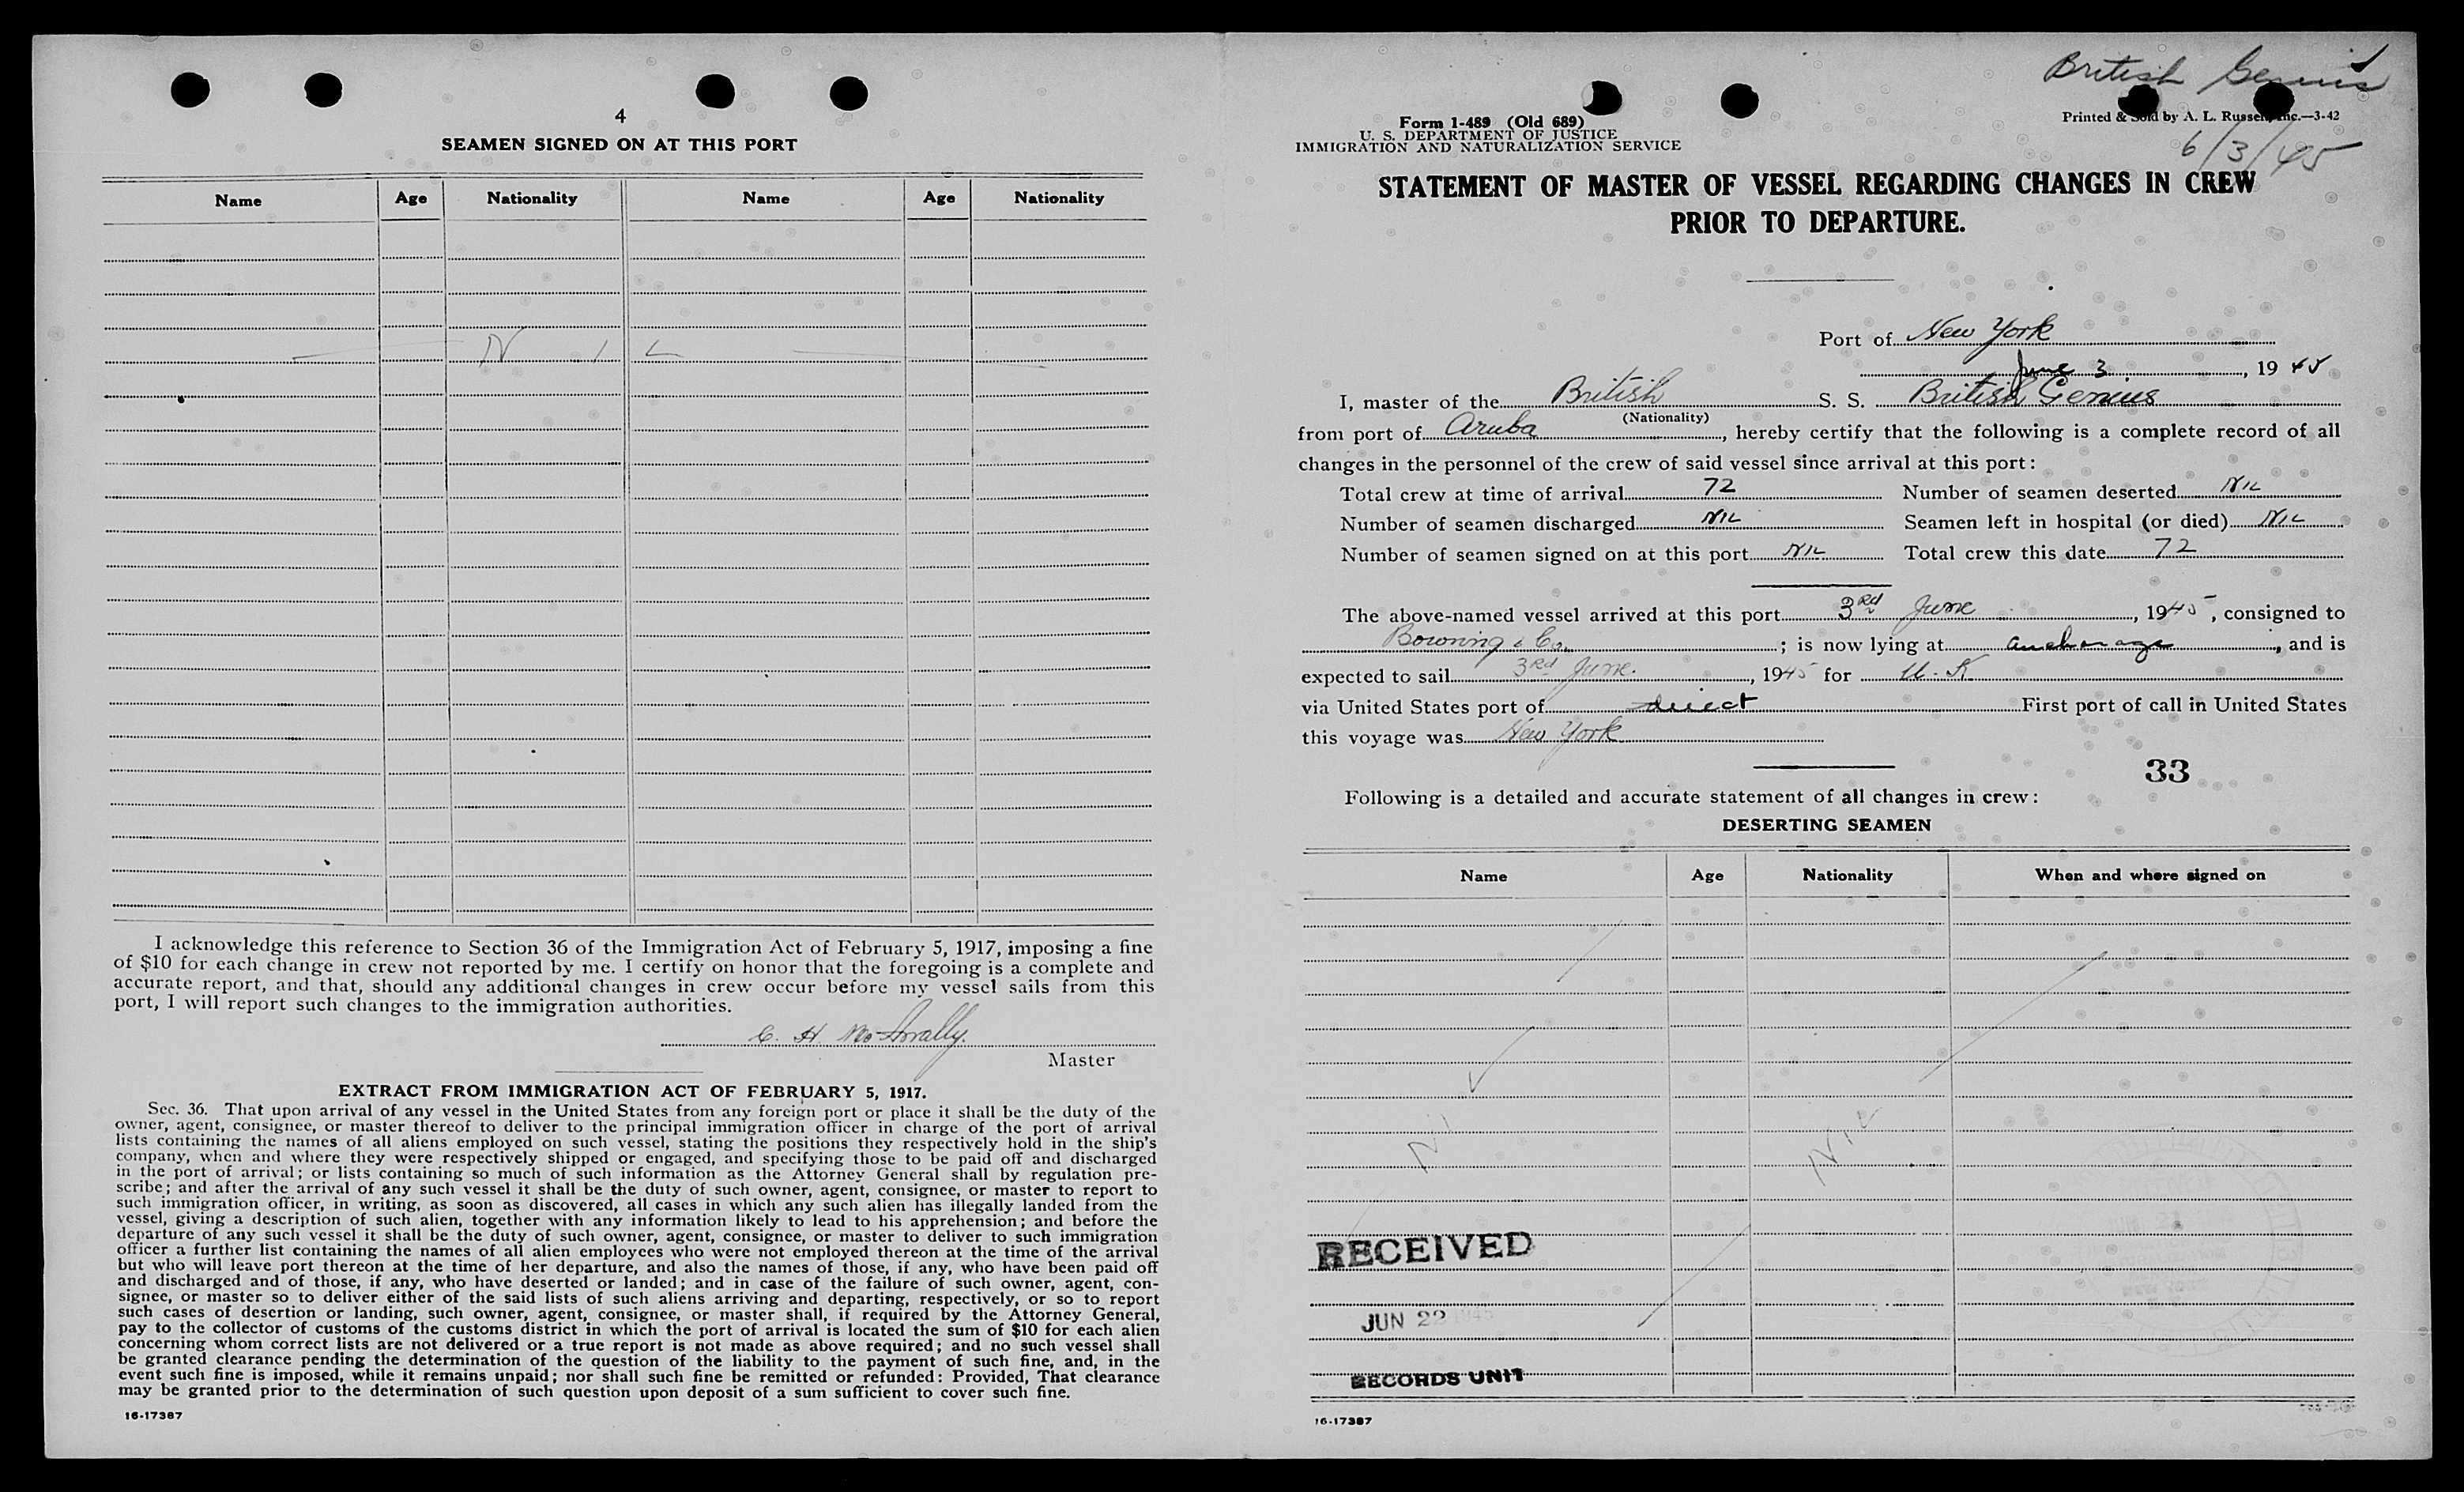 4
SEAMEN SIGNED ON AT THIS PORT
Name Age Nationality Name Age Nationality
N I L
I acknowledge this reference to Section 36 of the Immigration Act of February 5, 1917, imposing a fine
of $10 for each change in crew not reported by me. I certify on honor that the foregoing is a complete and
accurate report, and that, should any additional changes in crew occur before my vessel sails from this
port, I will report such changes to the immigration authorities.
C. H.
Master
EXTRACT FROM IMMIGRATION ACT OF FEBRUARY 5, 1917.
Sec. 36. That upon arrival of any vessel in the United States from any foreign port or place it shall be the duty of the
owner, agent, consignee, or master thereof to deliver to the principal immigration officer in charge of the port of arrival
lists containing the names of all aliens employed on such vessel, stating the positions they respectively hold in the ship's
company, when and where they were respectively shipped or engaged, and specifying those to be paid off and discharged
in the port of arrival; or lists containing so much of such information as the Attorney General shall by regulation pre-
scribe; and after the arrival of any such vessel it shall be the duty of such owner, agent, consignee, or master to report to
such immigration officer, in writing, as soon as discovered, all cases in which any such alien has illegally landed from the
vessel, giving a description of such alien, together with any information likely to lead to his apprehension; and before the
departure of any such vessel it shall be the duty of such owner, agent, consignee, or master to deliver to such immigration
officer a further list containing the names of all alien employees who were not employed thereon at the time of the arrival
but who will leave port thereon at the time of her departure, and also the names of those, if any, who have been paid off
and discharged and of those, if any, who have deserted or landed; and in case of the failure of such owner, agent, con-
signee, or master so to deliver either of the said lists of such aliens arriving and departing, respectively, or so to report
such cases of desertion or landing, such owner, agent, consignee, or master shall, if required by the Attorney General,
pay to the collector of customs of the customs district in which the port of arrival is located the sum of $10 for each alien
concerning whom correct lists are not delivered or a true report is not made as above required; and no such vessel shall
be granted clearance pending the determination of the question of the liability to the payment of such fine, and, in the
event such fine is imposed, while it remains unpaid; nor shall such fine be remitted or refunded: Provided, That clearance
may be granted prior to the determination of such question upon deposit of a sum sufficient to cover such fine.
16-17387
British Genius
Form 1-489 (Old 689)
Printed & Sold by A. L. Russell, Inc.—3-42
U. S. DEPARTMENT OF JUSTICE
IMMIGRATION AND NATURALIZATION SERVICE
6/3/45
STATEMENT OF MASTER OF VESSEL REGARDING CHANGES IN CREW
PRIOR TO DEPARTURE.
Port of New York
June 3, 1945
I, master of the British S. S. British Genius
(Nationality)
from port of Aruba, hereby certify that the following is a complete record of all
changes in the personnel of the crew of said vessel since arrival at this port:
Total crew at time of arrival 72 Number of seamen deserted NIL
Number of seamen discharged NIL Seamen left in hospital (or died) NIL
Number of seamen signed on at this port NIL Total crew this date 72
The above-named vessel arrived at this port 3rd June, 1945, consigned to
Bowring & Co.; is now lying at anchorage, and is
expected to sail 3rd June, 1945 for U.K
via United States port of direct First port of call in United States
this voyage was New York
33
Following is a detailed and accurate statement of all changes in crew:
DESERTING SEAMEN
Name Age Nationality When and where signed on
Nil
RECEIVED
JUN 22 1945
RECORDS UNIT
16-17387